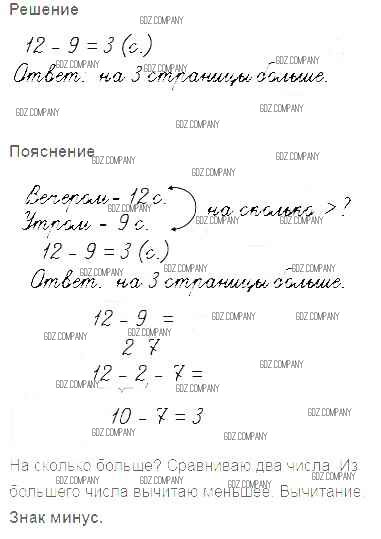 Решение
12 - 9 = 3 (с.)
Ответ: на 3 страницы больше.
Пояснение
Вечером - 12 с.
на сколько > ?
Утром - 9 с.
12 - 9 = 3 (с.)
Ответ: на 3 страницы больше.
12 - 9 =
2 7
12 - 2 - 7 =
10 - 7 = 3
На сколько больше? Сравниваю два числа. Из
большего числа вычитаю меньшее. Вычитание.
Знак минус.
GDZ.COMPANY